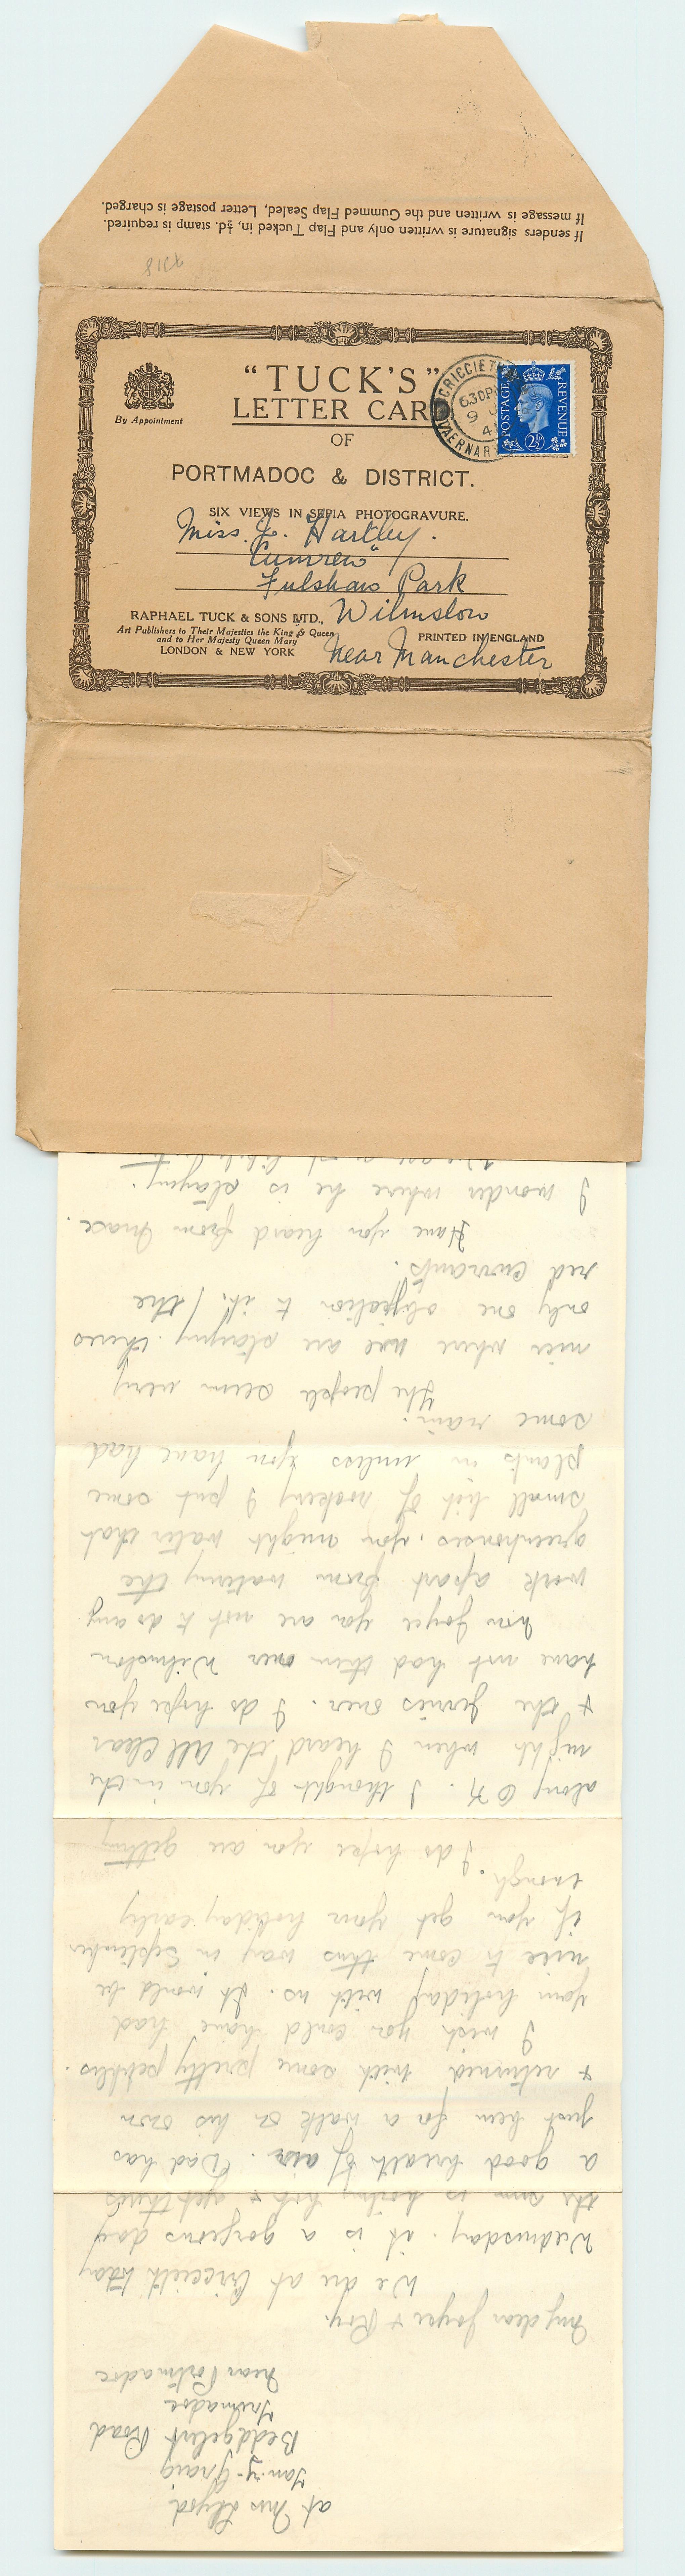 If senders signature is written only and Flap Tucked in, ½d. stamp is required.
If message is written and the Gummed Flap Sealed, Letter postage is charged.
"TUCK'S"
LETTER CARD
OF
PORTMADOC & DISTRICT.
SIX VIEWS IN SEPIA PHOTOGRAVURE.
By Appointment
CRICCIETH
6.30PM
9
41
CAERNARV
POSTAGE
REVENUE
2½D
Miss. J. Hartley.
"Cumrew"
Fulshaw Park
Wilmslow
Near Manchester
RAPHAEL TUCK & SONS LTD.,
Art Publishers to Their Majesties the King & Queen
and to Her Majesty Queen Mary
LONDON & NEW YORK
PRINTED IN ENGLAND
at Mrs Lloyd
Tan-y-Graig
Beddgelert Road
Tremadoc
Near Portmadoc
My dear Joyce & Roy.
We are at Criccieth today
Wednesday. it is a gorgeous day
the sun is boiling hot & yet theres
a good breath of air. Dad has
just been for a walk on his own
& returned with some pretty pebbles.
I wish you could have had
your holiday with us. It would be
nice to come this way in September
if you get your holiday early
enough.
I do hope you are getting
along O K. I thought of you in the
night when I heard the All Clear
& the jerries over. I do hope you
have not had them over Wilmslow
now Joyce you are not to do any
work apart from watering the
greenhouses. you might water that
small bit of rockery I put some
plants in unless you have had
some rain.
The people seem very
nice where we are staying. theres
only one objection to it, (the
red currants.
Have you heard from Mace.
I wonder where he is staying.